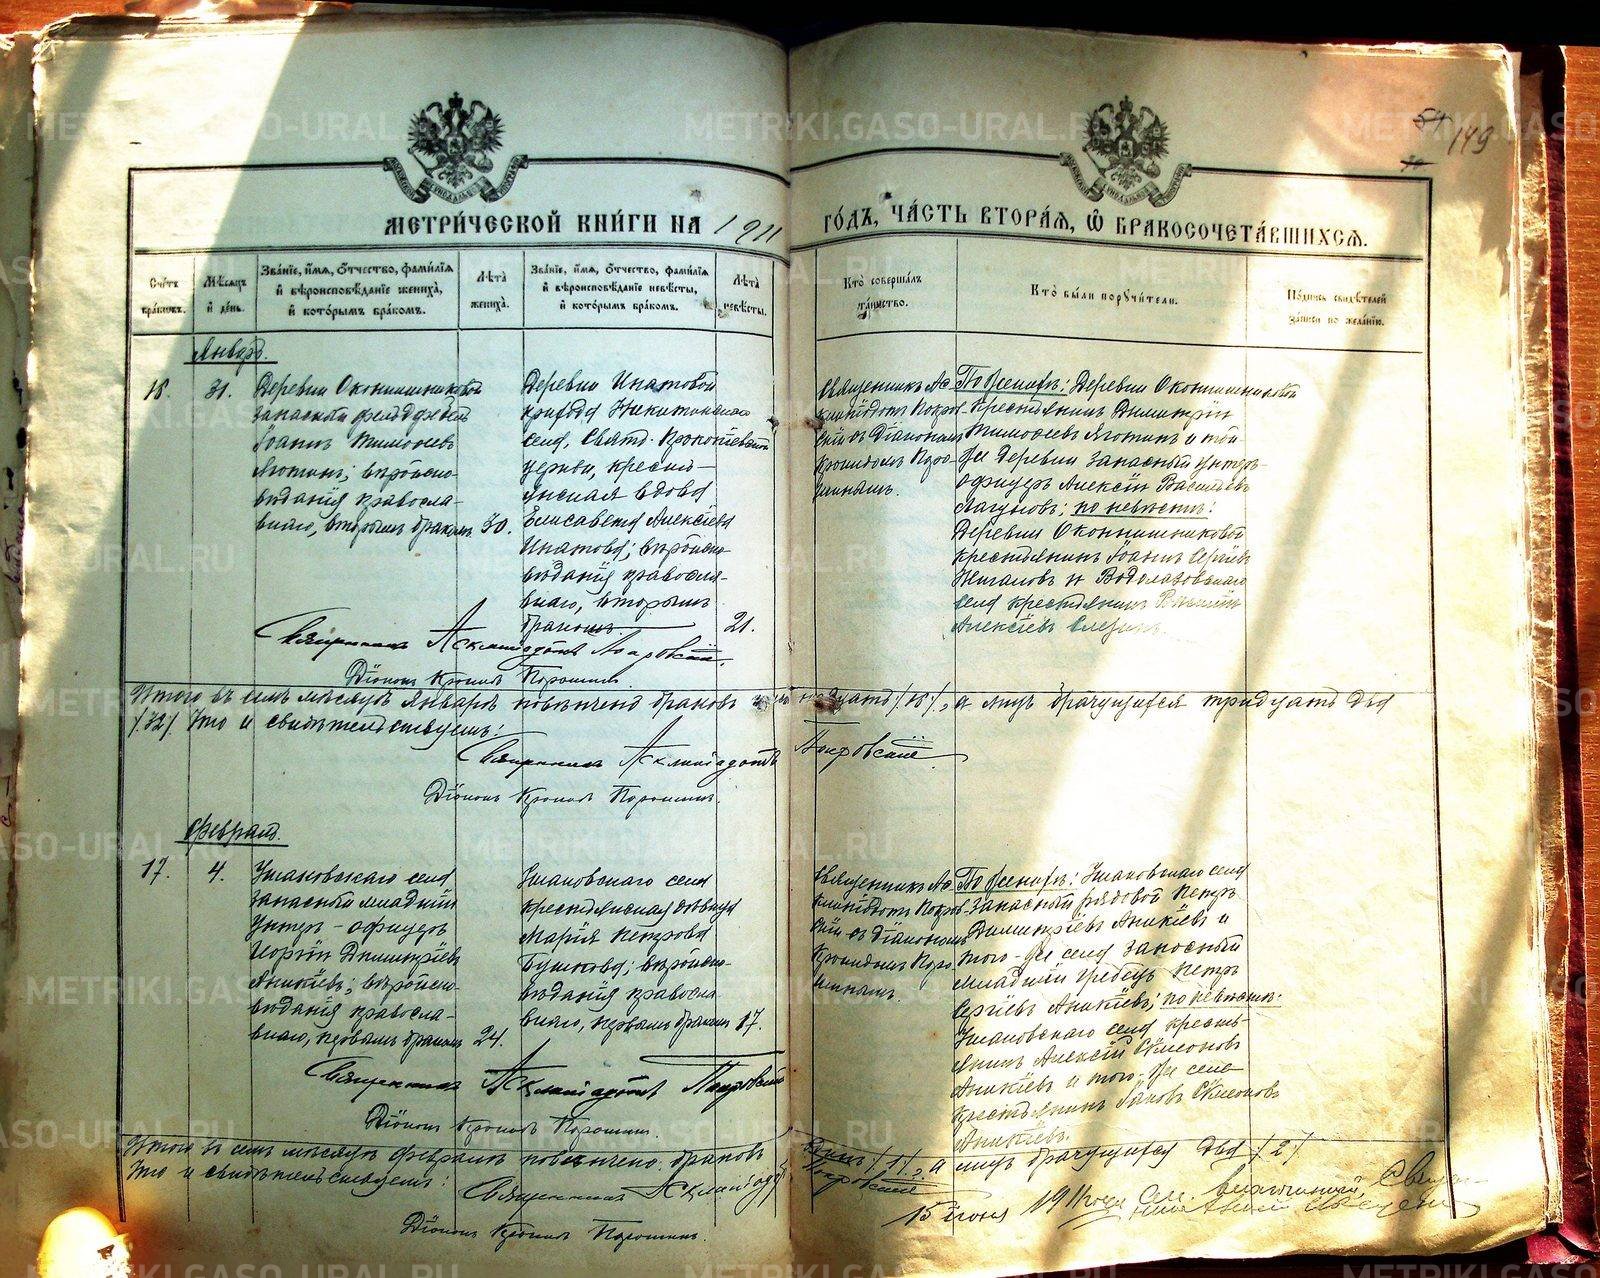 51 149
МЕТРИ́ЧЕСКОЙ КНИ́ГИ НА 1911 ГО́ДЪ, ЧА́СТЬ ВТОРА́Я, Ѽ БРАКОСОЧЕТА́ВШИХСЯ.
Сче́тъ бра́ковъ.
Мѣ́сяцъ и҆ де́нь.
Зва́нїе, и҆́мя, ѻ҆́тчество, фами́лїя и҆ вѣроисповѣ́данїе жениха̀, и҆ кото́рымъ бра́комъ.
Лѣ́та жениха̀.
Зва́нїе, и҆́мя, ѻ҆́тчество, фами́лїя и҆ вѣроисповѣ́данїе невѣ́сты, и҆ кото́рымъ бра́комъ.
Лѣ́та невѣ́сты.
Кто̀ соверша́лъ та́инство.
Кто̀ бы́ли поручи́тели.
По́дпись свидѣ́телей за́писи по жела́нїю.
Январь.
31.
Деревни Оконишниковой
запасный фейерверкеръ
Іоаннъ Тимофеевъ
вѣроиспо-
вѣданія православ-
наго, вторымъ бракомъ
30.
Деревни Игнатовой
прихода Никитинскаго
села, Свято-Прокопіевской
церкви, кресть-
янская вдова
Елисавета Алексіева
Игнатова; вѣроиспо-
вѣданія православ-
наго, вторымъ
бракомъ.
21.
Священникъ Ас-
клипіодотъ Покров-
скій съ Діакономъ
Кронидомъ Поро-
шинымъ.
По женихѣ: Деревни Оконишниковой
Крестьянинъ Димитрій
Тимофеевъ и той-
же Деревни запасный унтеръ-
офицеръ Алексій Васильевъ
по невѣстѣ:
Деревни Оконишниковой
крестьянинъ Іоаннъ Сергіевъ
села крестьянинъ
Алексіевъ
Священникъ Асклипіодотъ Покровскій.
Діаконъ Кронидъ Порошинъ.
Итого въ семъ мѣсяцѣ Январѣ повѣнчано браковъ а лицъ брачущихся тридцать два
/32/. Что и свидѣтельствуемъ:
Священникъ Асклипіодотъ Покровскій
Діаконъ Кронидъ Порошинъ.
Февраль.
17.
4.
села
запасный младшій
унтеръ-офицеръ
Георгій Димитріевъ
Аникіевъ; вѣроиспо-
вѣданія православ-
наго, первымъ бракомъ
24.
села
крестьянская дѣвица
Марія Петрова
вѣроиспо-
вѣданія православ-
наго, первымъ бракомъ
17.
Священникъ Ас-
клипіодотъ Покров-
скій съ Діакономъ
Кронидомъ Поро-
шинымъ.
По женихѣ: села
Запасный рядовой Петръ
Димитріевъ Аникіевъ и
того-же села запасный
младшій Петръ
Сергіевъ Аникіевъ; по невѣстѣ:
села кресть-
янинъ Алексій Симеоновъ
Аникіевъ и того-же села
крестьянинъ Іаковъ Симеоновъ
Аникіевъ.
Священникъ Асклипіодотъ Покровскій
Діаконъ Кронидъ Порошинъ.
Итого въ семъ мѣсяцѣ Февралѣ повѣнчано браковъ Одинъ /1/, а лицъ брачущихся два /2/
Что и свидѣтельствуемъ:
Священникъ Асклипіодотъ Покровскій
Діаконъ Кронидъ Порошинъ.
15 іюня 1911 года
METRIKI.GASO-URAL.RU